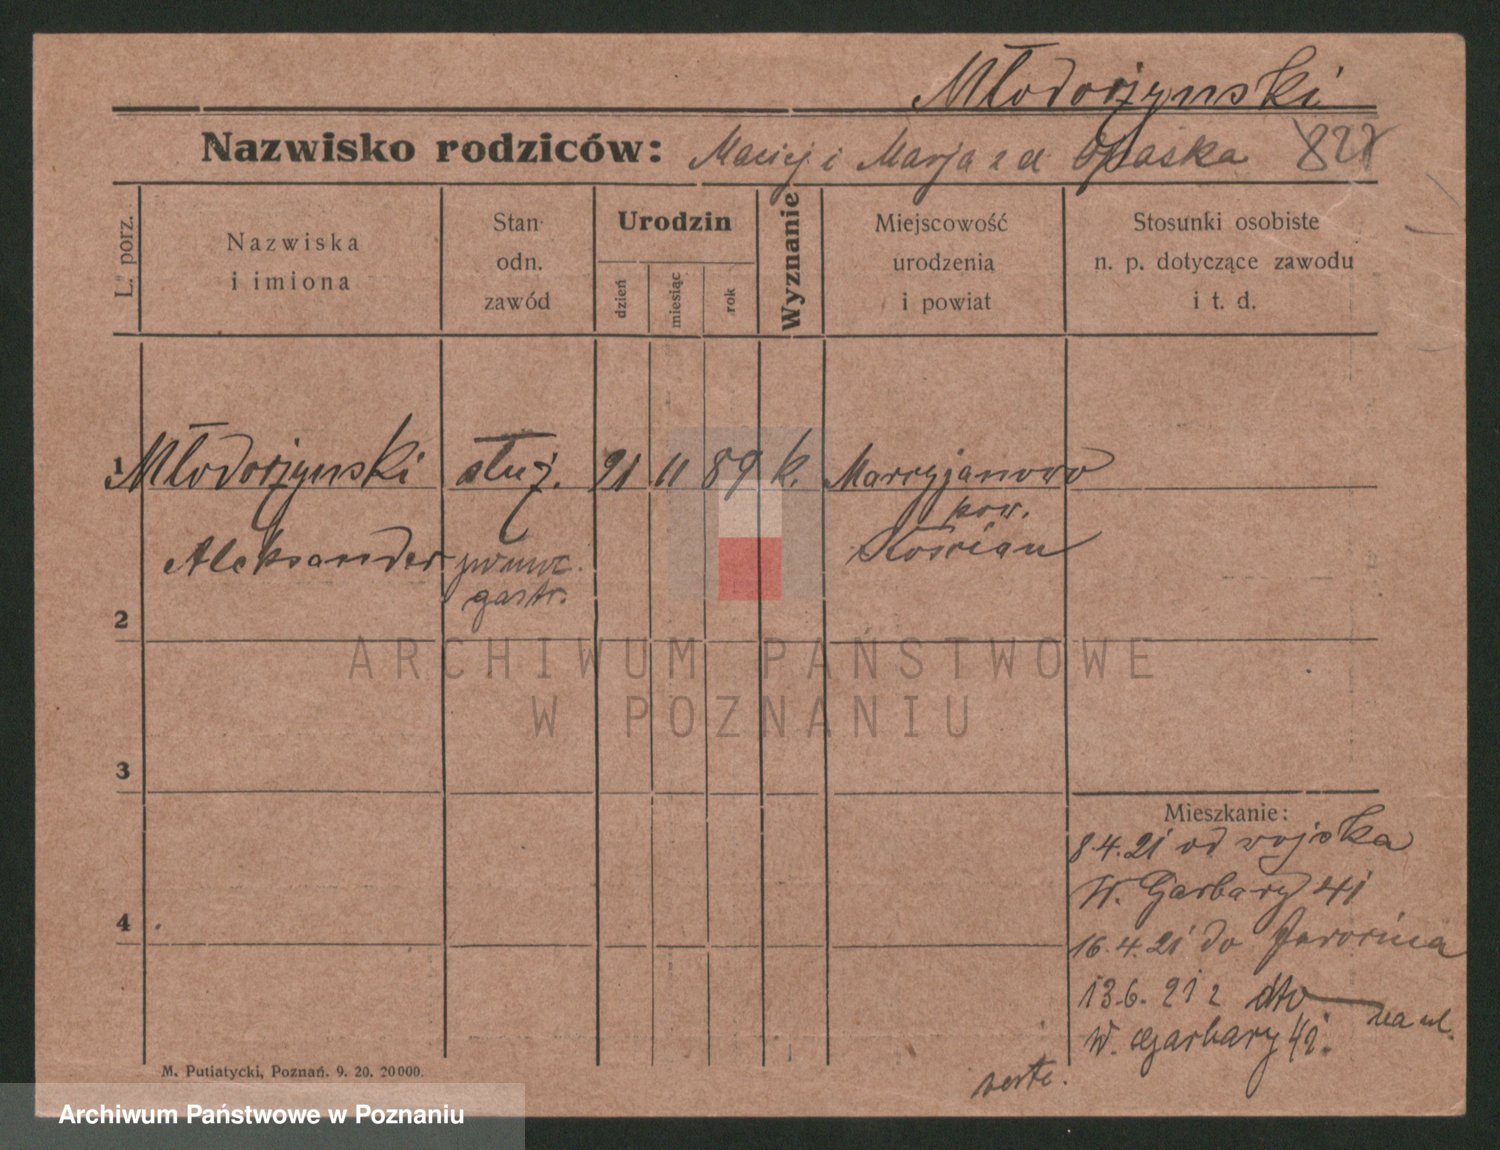 Młodożynski
Nazwisko rodziców: Maciej i Marja z d. Opaska
L. porz.
Nazwiska
i imiona
Stan
odn.
zawód
Urodzin
dzień
miesiąc
rok
Wyznanie
Miejscowość
urodzenia
i powiat
Stosunki osobiste
n. p. dotyczące zawodu
i t. d.
1 Młodożynski służ. 21 11 89 k. Marryjanowo
pow.
Aleksander Kościan
gastr.
2
3
4
Mieszkanie:
8.4.21 od wojska
W. Garbary 41
16.4.21 do Jarocina
13.6.21 z dto na ul.
W. Garbary 42.
verte.
M. Putiatycki, Poznań. 9. 20. 20000.
ARCHIWUM PAŃSTWOWE
W POZNANIU
Archiwum Państwowe w Poznaniu